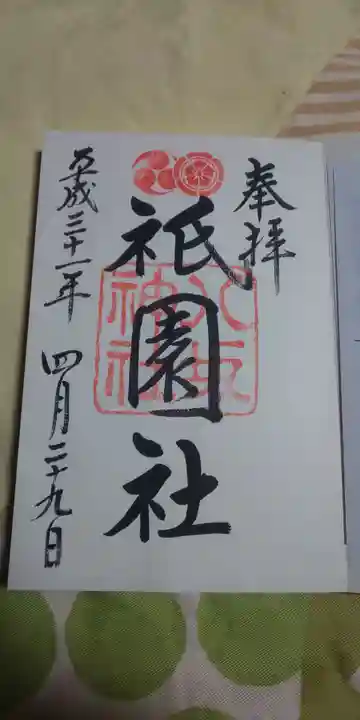 奉拝
祇園社
八坂神社
平成三十一年 四月二十九日